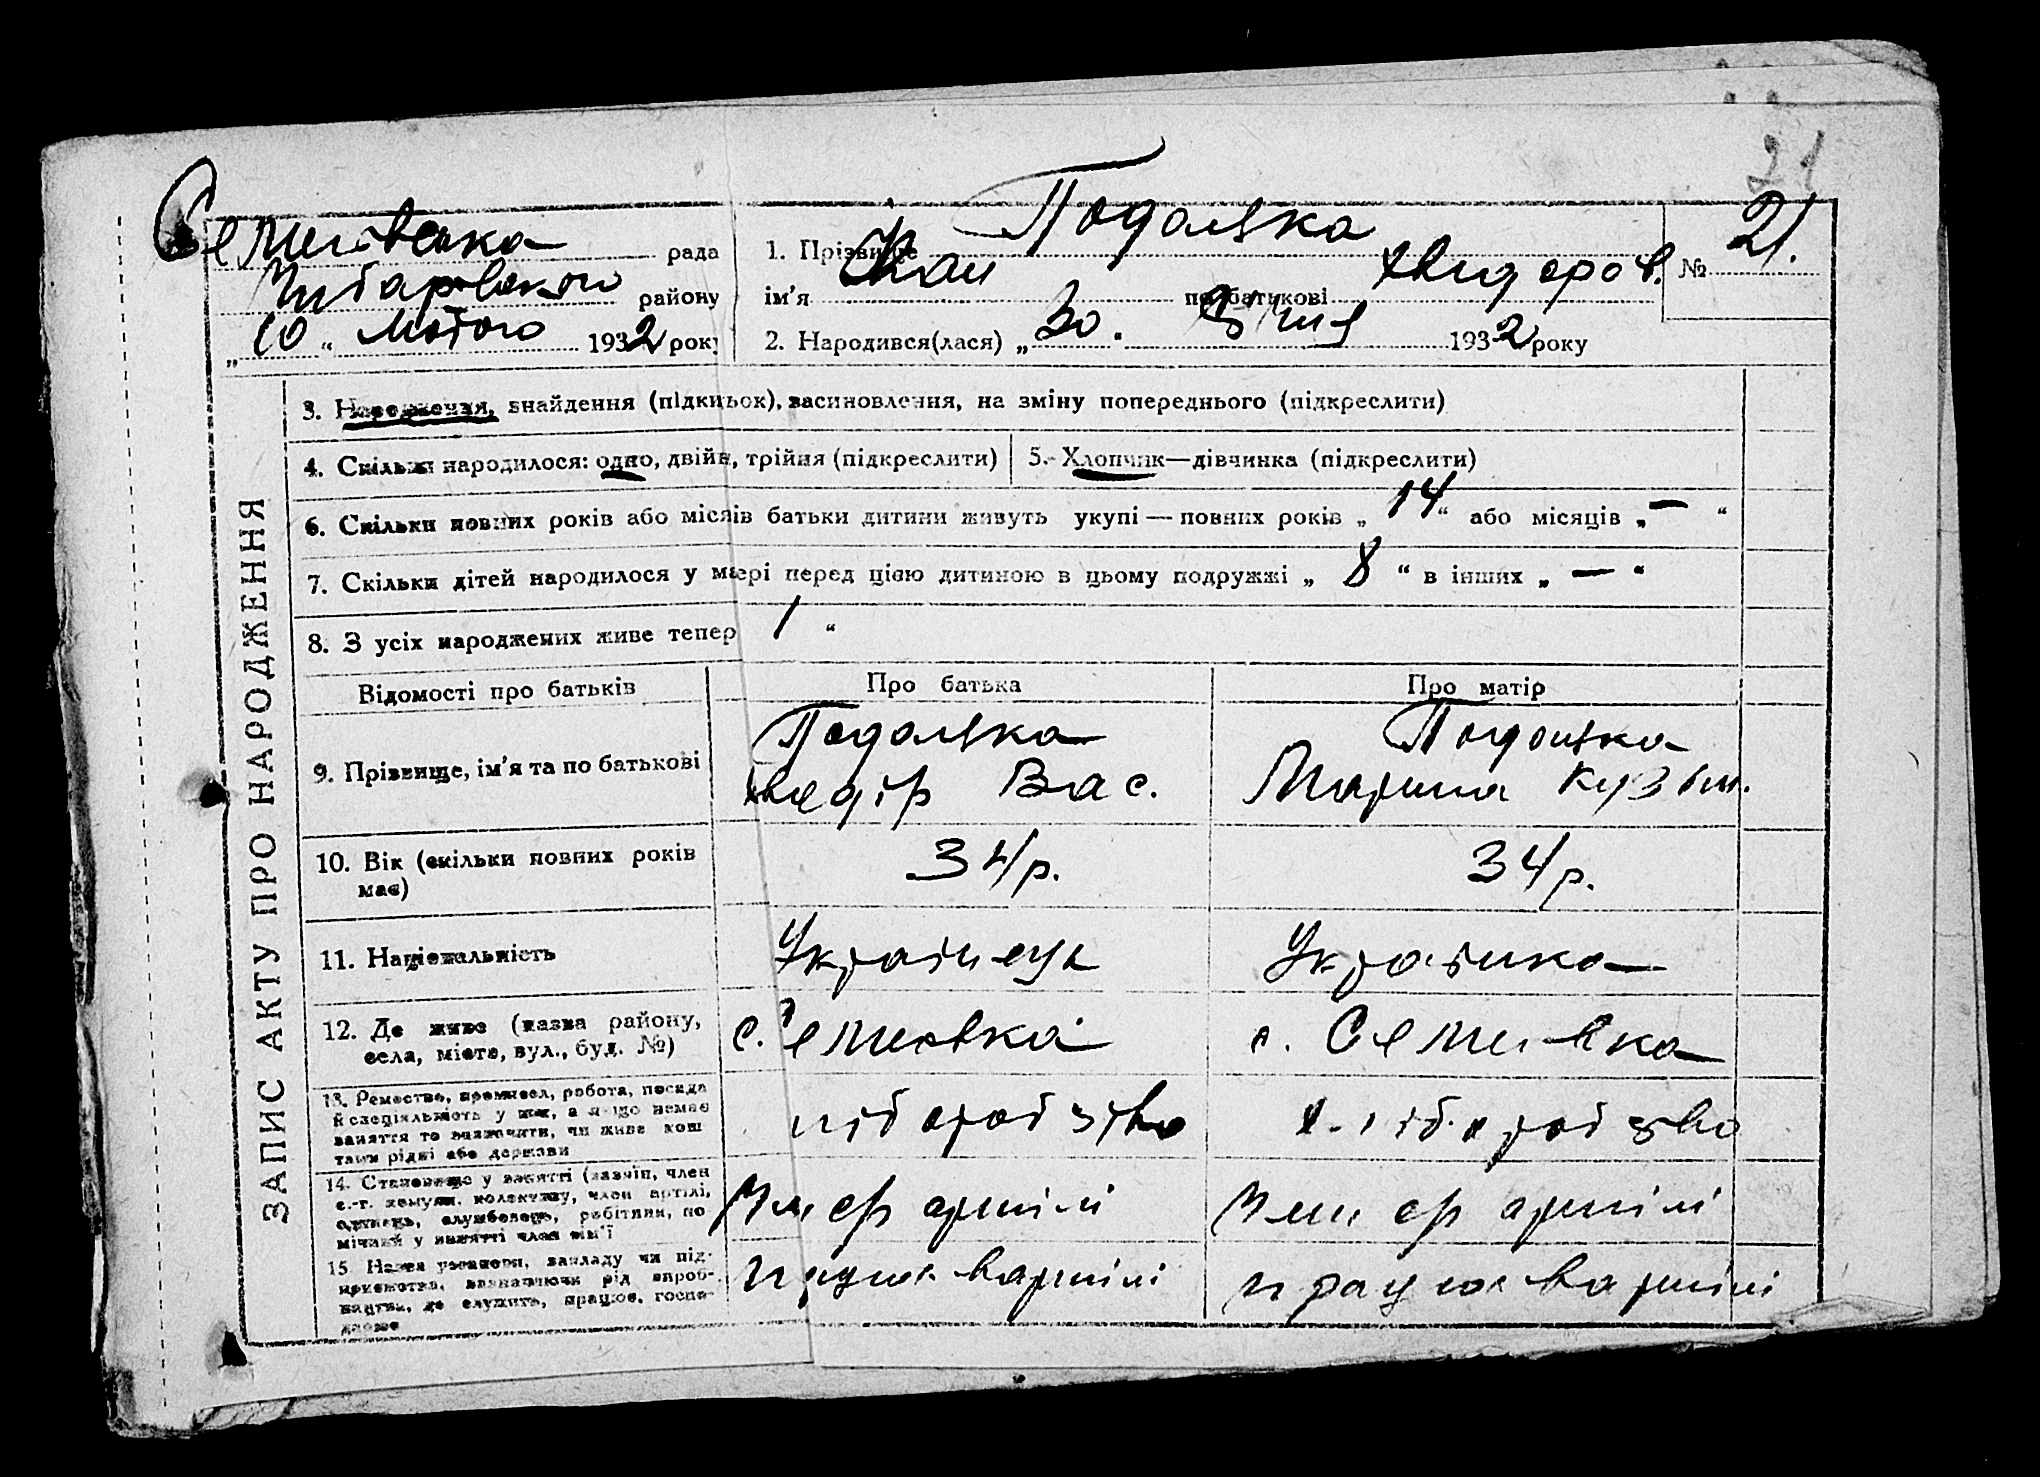 21
Семенівська рада
району
„10“ лютого 1932 року
Подоляка
1. Прізвище
ім'я Іван по батькові Хведоров.
№ 21.
2. Народився(лася) „30“ Січня 1932 року
ЗАПИС АКТУ ПРО НАРОДЖЕННЯ
3. Народження, знайдення (підкидьок), засиновлення, на зміну попереднього (підкреслити)
4. Скільки народилося: одно, двійня, трійня (підкреслити)
5. Хлопчик—дівчинка (підкреслити)
6. Скільки повних років або місяців батьки дитини живуть укупі — повних років „14“ або місяців „—“
7. Скільки дітей народилося у матері перед цією дитиною в цьому подружжі „8“ в інших „—“
8. З усіх народжених живе тепер 1 “
Відомості про батьків
Про батька
Про матір
9. Прізвище, ім'я та по батькові
Подоляка
Хведір Вас.
Подоляка
Марина Кузьм.
10. Вік (скільки повних років
має)
34 р.
34 р.
11. Національність
Українець
Українка
12. Де живе (назва району,
села, міста, вул., буд. №)
с. Семенівка
с. Семенівка
13. Ремество, промисел, робота, посада
й спеціяльність у них, а якщо немає
заняття то зазначити, чи живе кош
тами рідні або держави
хліборобство
14. Становище у занятті (хазяїн, член
с.-г. комуни, колективу, член артілі,
одинець, службовець, робітник, по
мічний у занятті член сім'ї
Член артілі
Член артілі
15. Назва установи, закладу чи під-
приємства, зазначаючи рід вироб-
ництва, де служить, працює, госпо-
дарює
працює в артілі
працює в артілі